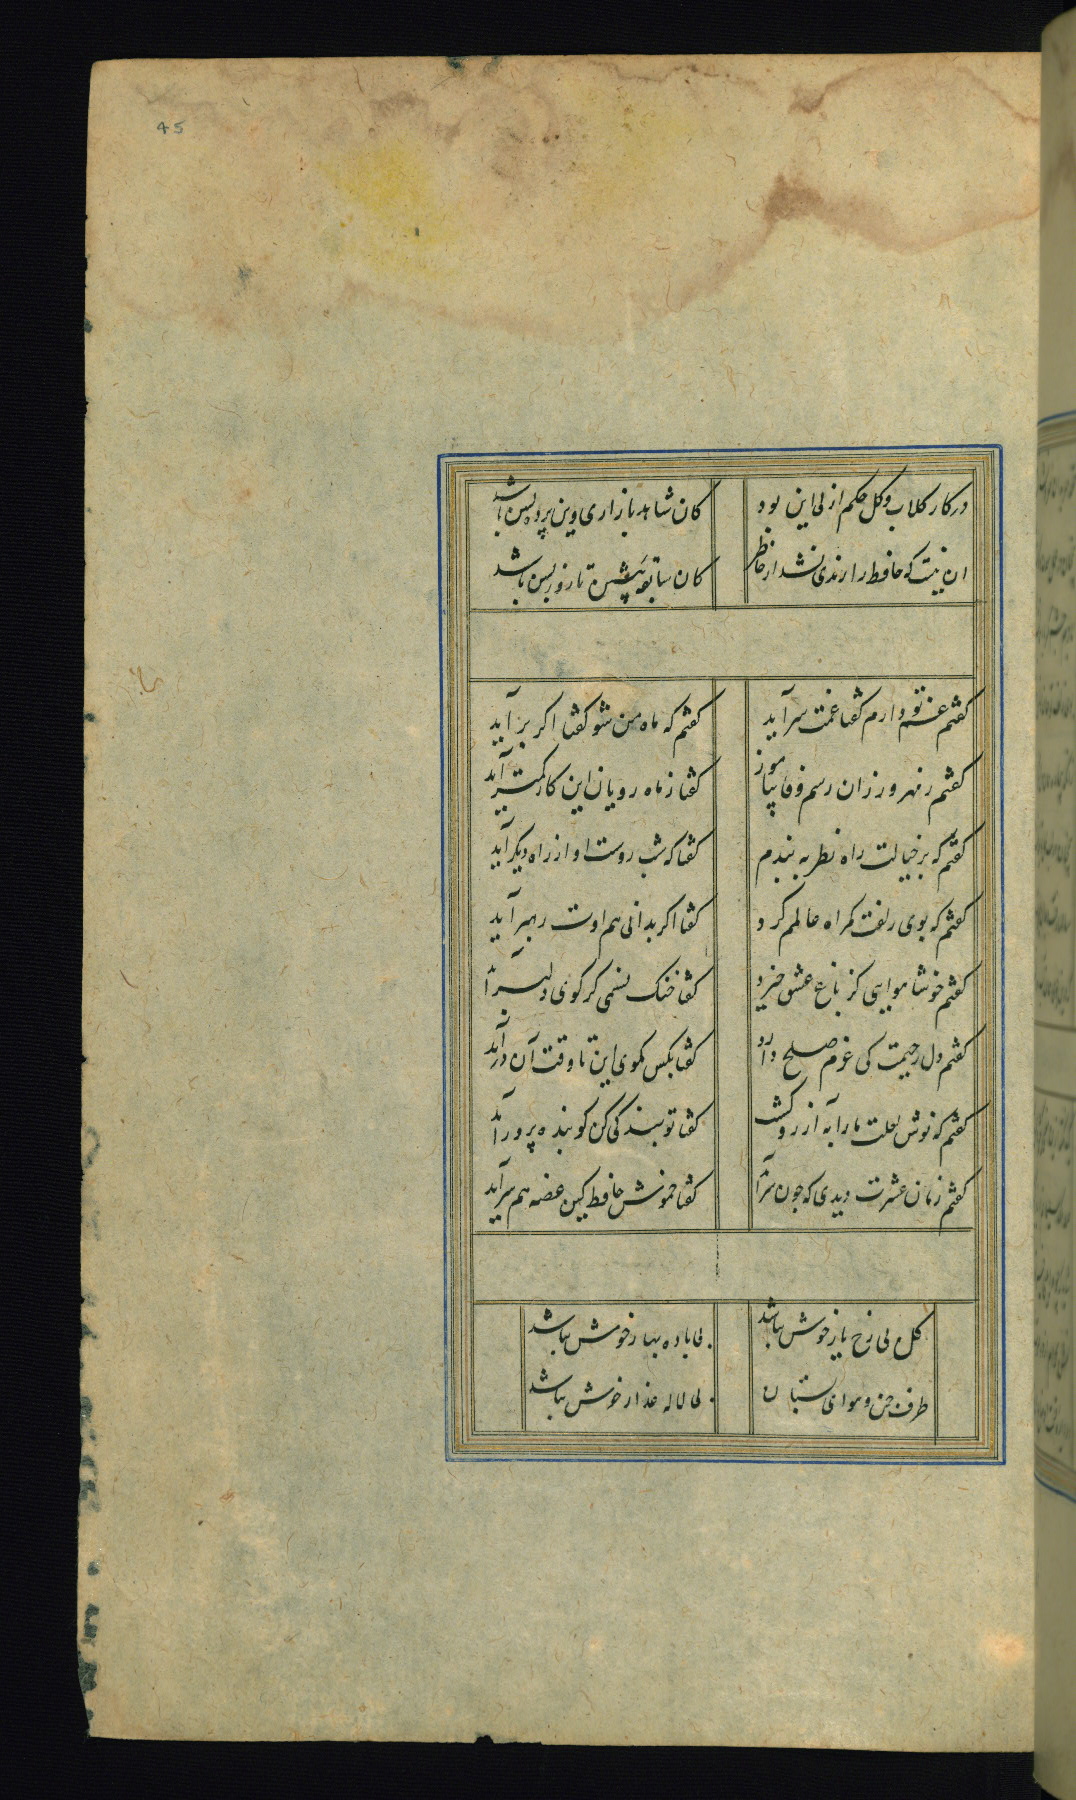 45
در کار کلاب و کل حکم ازلی این بود	کان شاهد بازاری وین پرده نشین باشد
ان نیست که حافظ را رندی نشد از خاطر	کان سابقه پیشین تا روز پسین باشد
کفتم غم تو دارم کفتا غمت سر آید	کفتم که ماه من شو کفتا اکر بر آید
کفتم ز مهر ورزان رسم وفا بیاموز	کفتا ز ماه رویان این کار کمتر آید
کفتم که بر خیالت راه نظر به بندم	کفتا که شب روست او از راه دیکر آید
کفتم که بوی زلفت کمراه عالمم کرد	کفتا اکر بدانی هم اوت رهبر آید
کفتم خوشا هوایی کز باغ عشق خیزد	کفتا خنک نسمی کز کوی دلبر آید
کفتم دل رحیمت کی عزم صلح دارد	کفتا بکس مکوی این تا وقت آن در آید
کفتم که نوش لعلت ما را به ارزو کشت	کفتا تو بندکی کن کو بنده پرور آید
کفتم زمان عشرت دیدی که چون سر آمد	کفتا خموش حافظ کین غصه هم سر آید
کل بی رخ یار خوش نباشد	بی باده بهار خوش نباشد
طرف چمن و هوای بستان	بی لاله عذار خوش نباشد